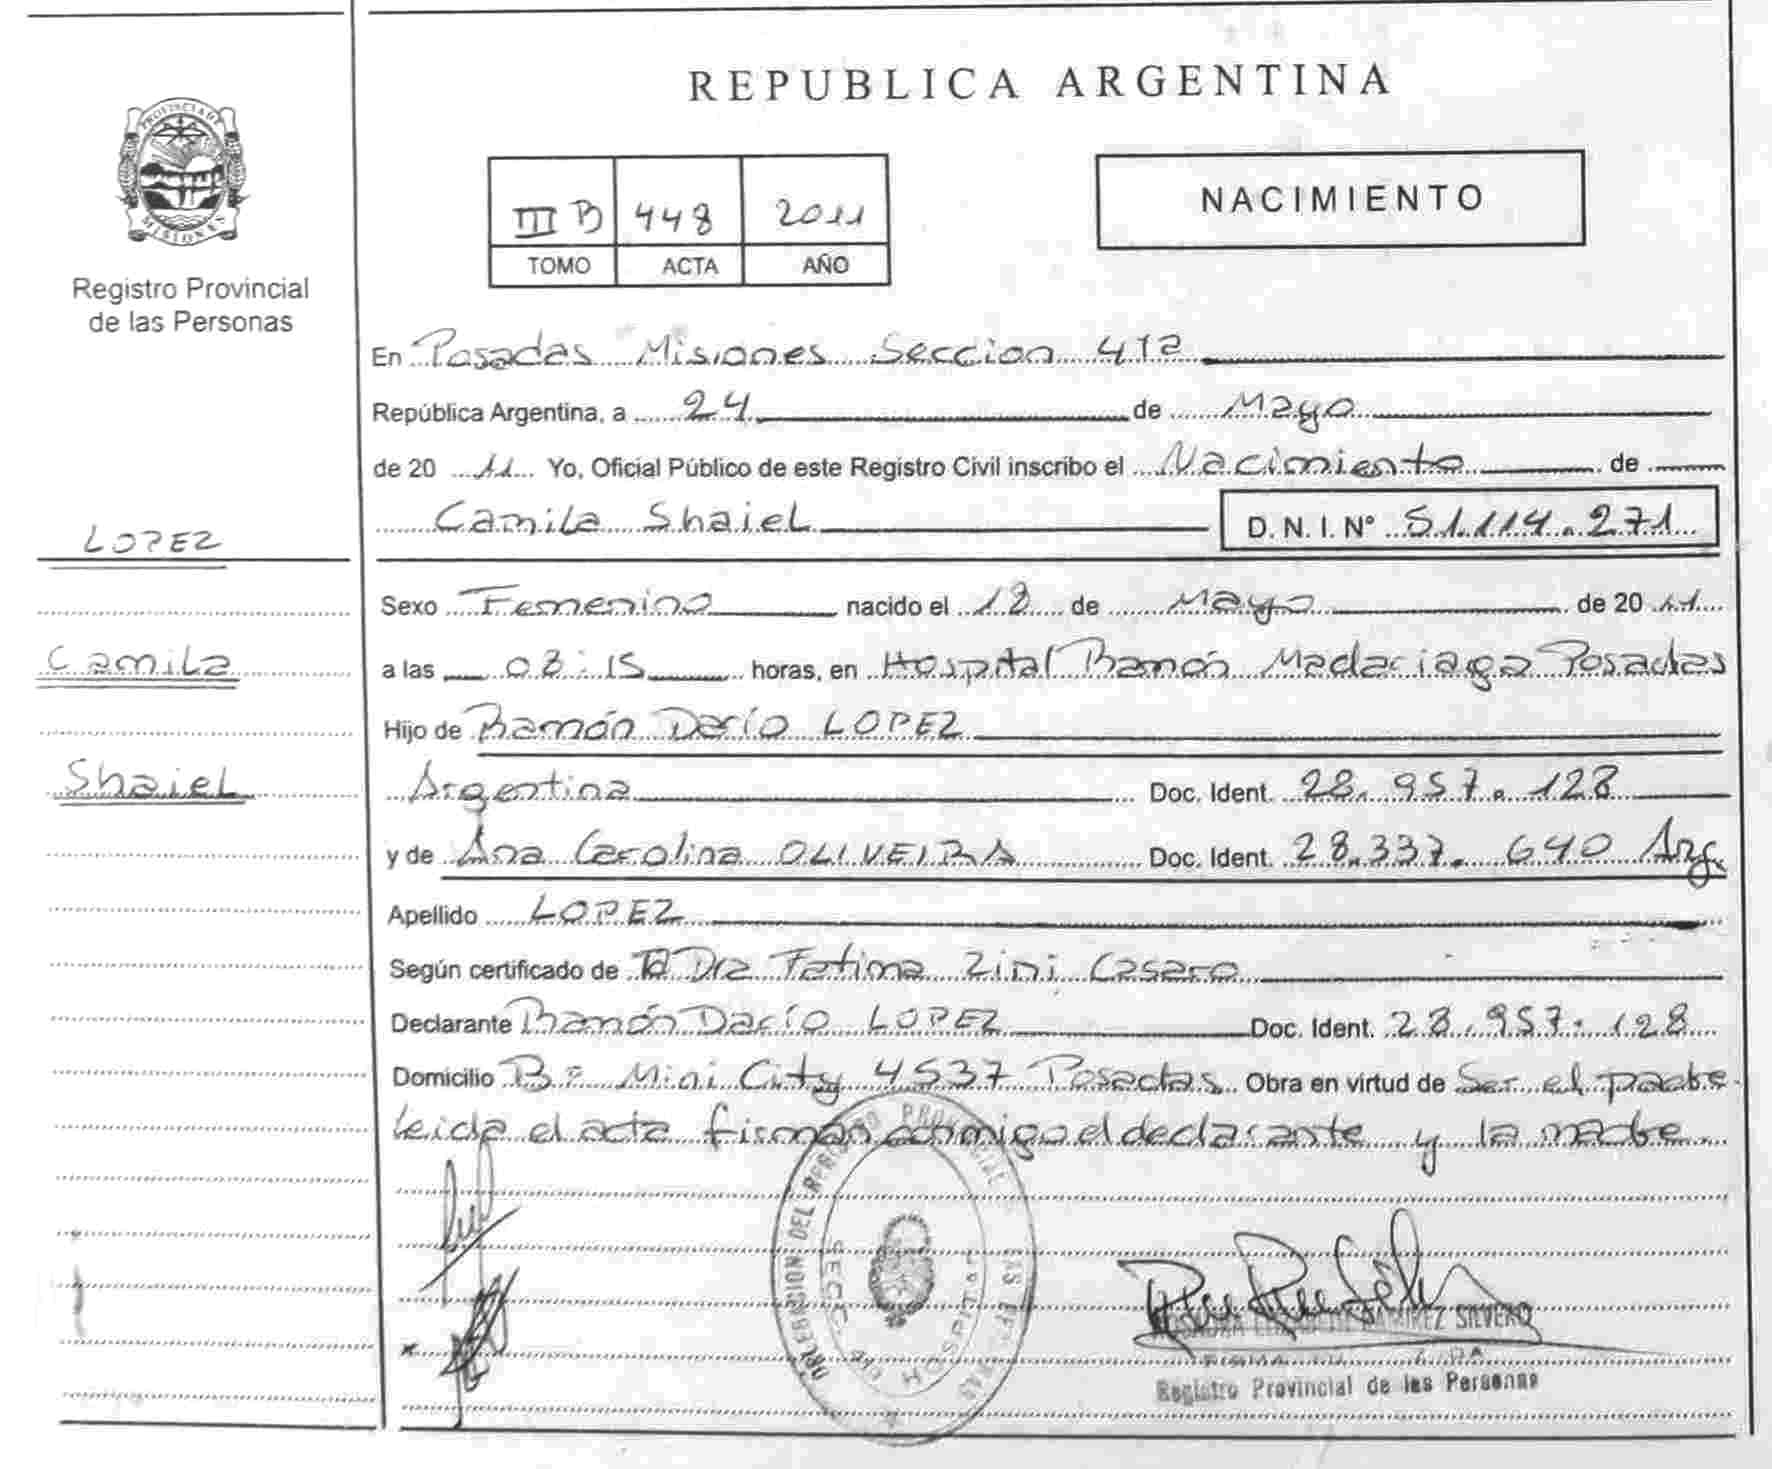 REPUBLICA ARGENTINA
PROVINCIA DE MISIONES
Registro Provincial
de las Personas
III B 448 2011
TOMO ACTA AÑO
NACIMIENTO
En Posadas Misiones Seccion 4ta
República Argentina, a 24 de Mayo
de 20 11 Yo, Oficial Público de este Registro Civil inscribo el Nacimiento de
Camila Shaiel D. N. I. Nº 51.114.271
LOPEZ
Camila
Shaiel
Sexo Femenino nacido el 18 de Mayo de 20 11
a las 08:15 horas, en Hospital Ramón Madariaga Posadas
Hijo de Ramón Darío LOPEZ
Argentina Doc. Ident. 28.957.128
y de Ana Carolina OLIVEIRA Doc. Ident. 28.337.640 Arg.
Apellido LOPEZ
Según certificado de Dra Fatima Zini Casaro
Declarante Ramón Darío LOPEZ Doc. Ident. 28.957.128
Domicilio Bº Mini City 4537 Posadas Obra en virtud de Ser el padre
leida el acta firman conmigo el declarante y la madre.
RAMIREZ SILVERO
Registro Provincial de las Personas